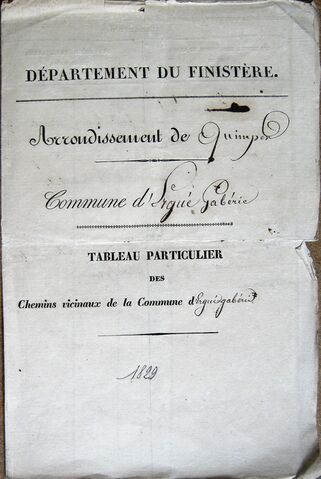 DÉPARTEMENT DU FINISTÈRE.
Arrondissement de Quimper
Commune d'Ergué Gabéric
TABLEAU PARTICULIER
DES
Chemins vicinaux de la Commune d'Ergué-gabéric
1829